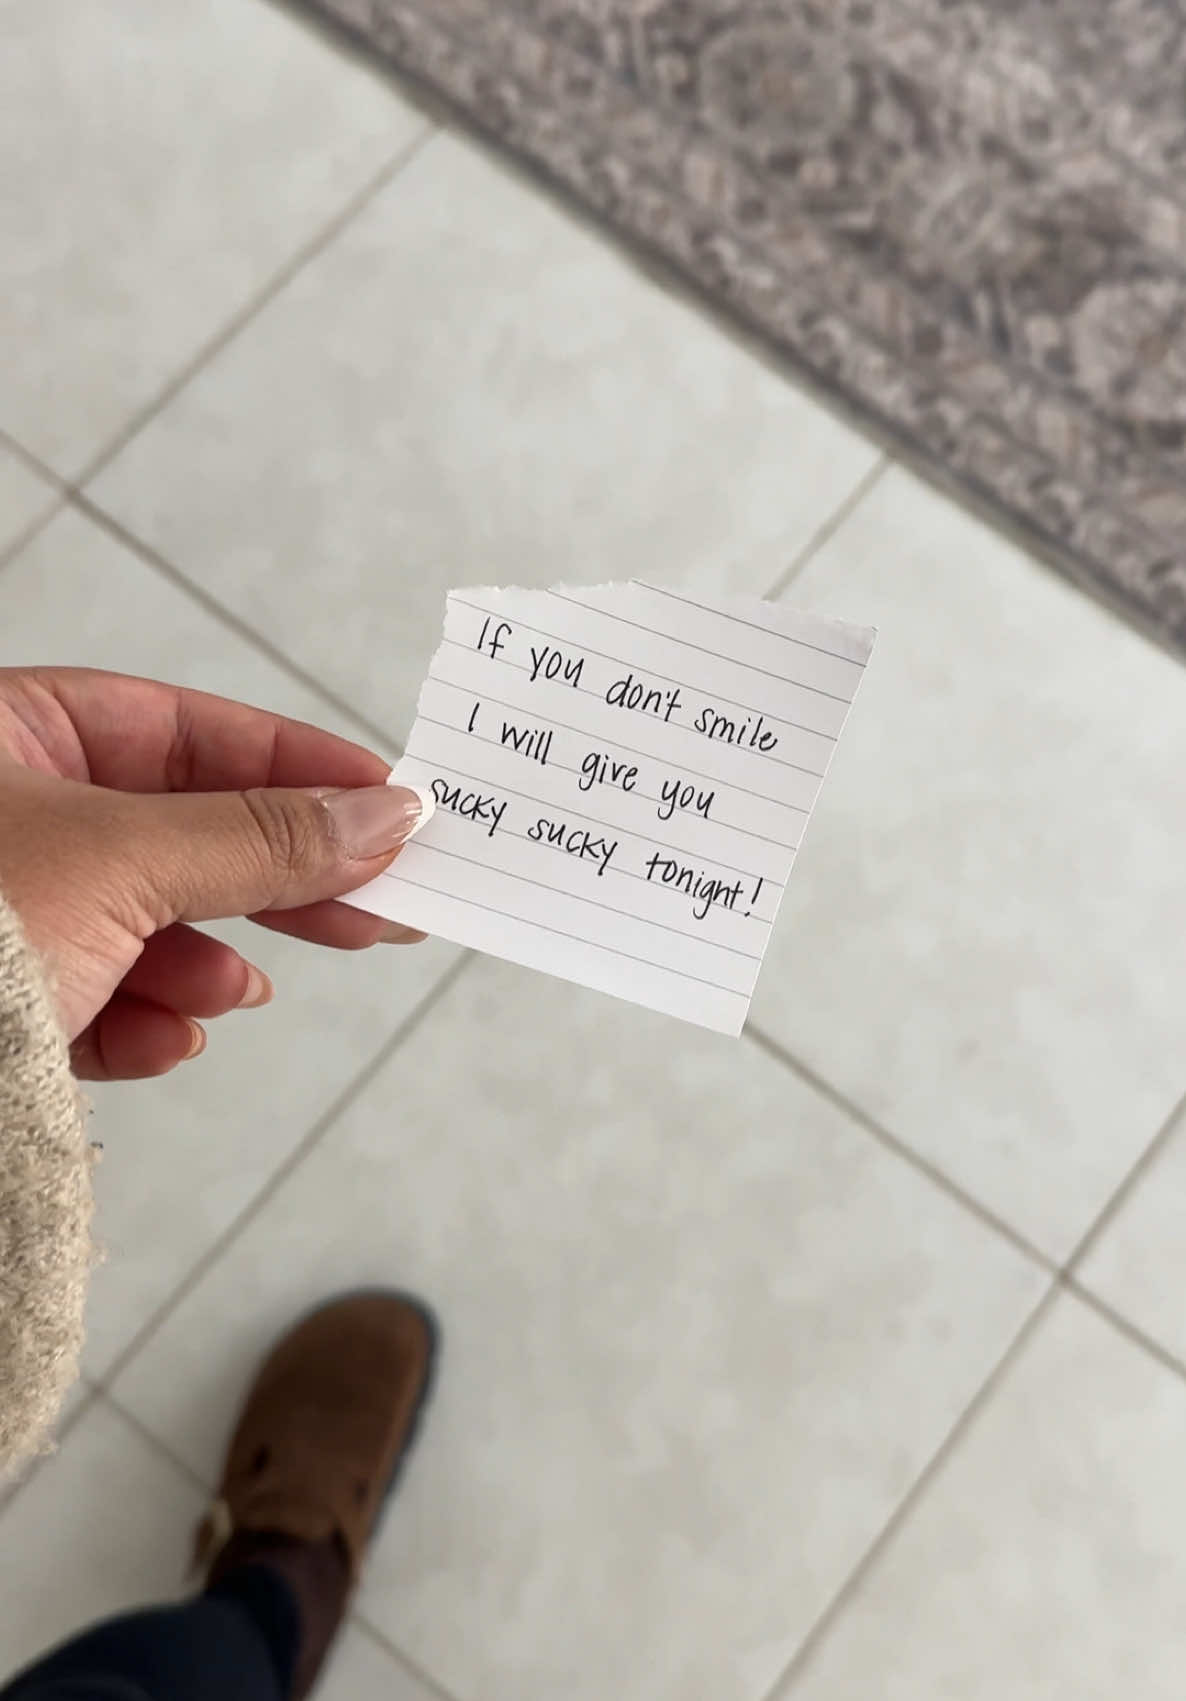 If you don't smile
I will give you
sucky sucky tonight!